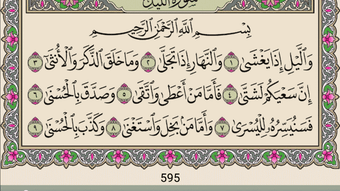 سورة الليل
بِسْمِ اللَّهِ الرَّحْمَٰنِ الرَّحِيمِ
وَاللَّيْلِ إِذَا يَغْشَىٰ ١ وَالنَّهَارِ إِذَا تَجَلَّىٰ ٢ وَمَا خَلَقَ الذَّكَرَ وَالْأُنثَىٰ ٣
إِنَّ سَعْيَكُمْ لَشَتَّىٰ ٤ فَأَمَّا مَنْ أَعْطَىٰ وَاتَّقَىٰ ٥ وَصَدَّقَ بِالْحُسْنَىٰ ٦
فَسَنُيَسِّرُهُ لِلْيُسْرَىٰ ٧ وَأَمَّا مَن بَخِلَ وَاسْتَغْنَىٰ ٨ وَكَذَّبَ بِالْحُسْنَىٰ ٩
595